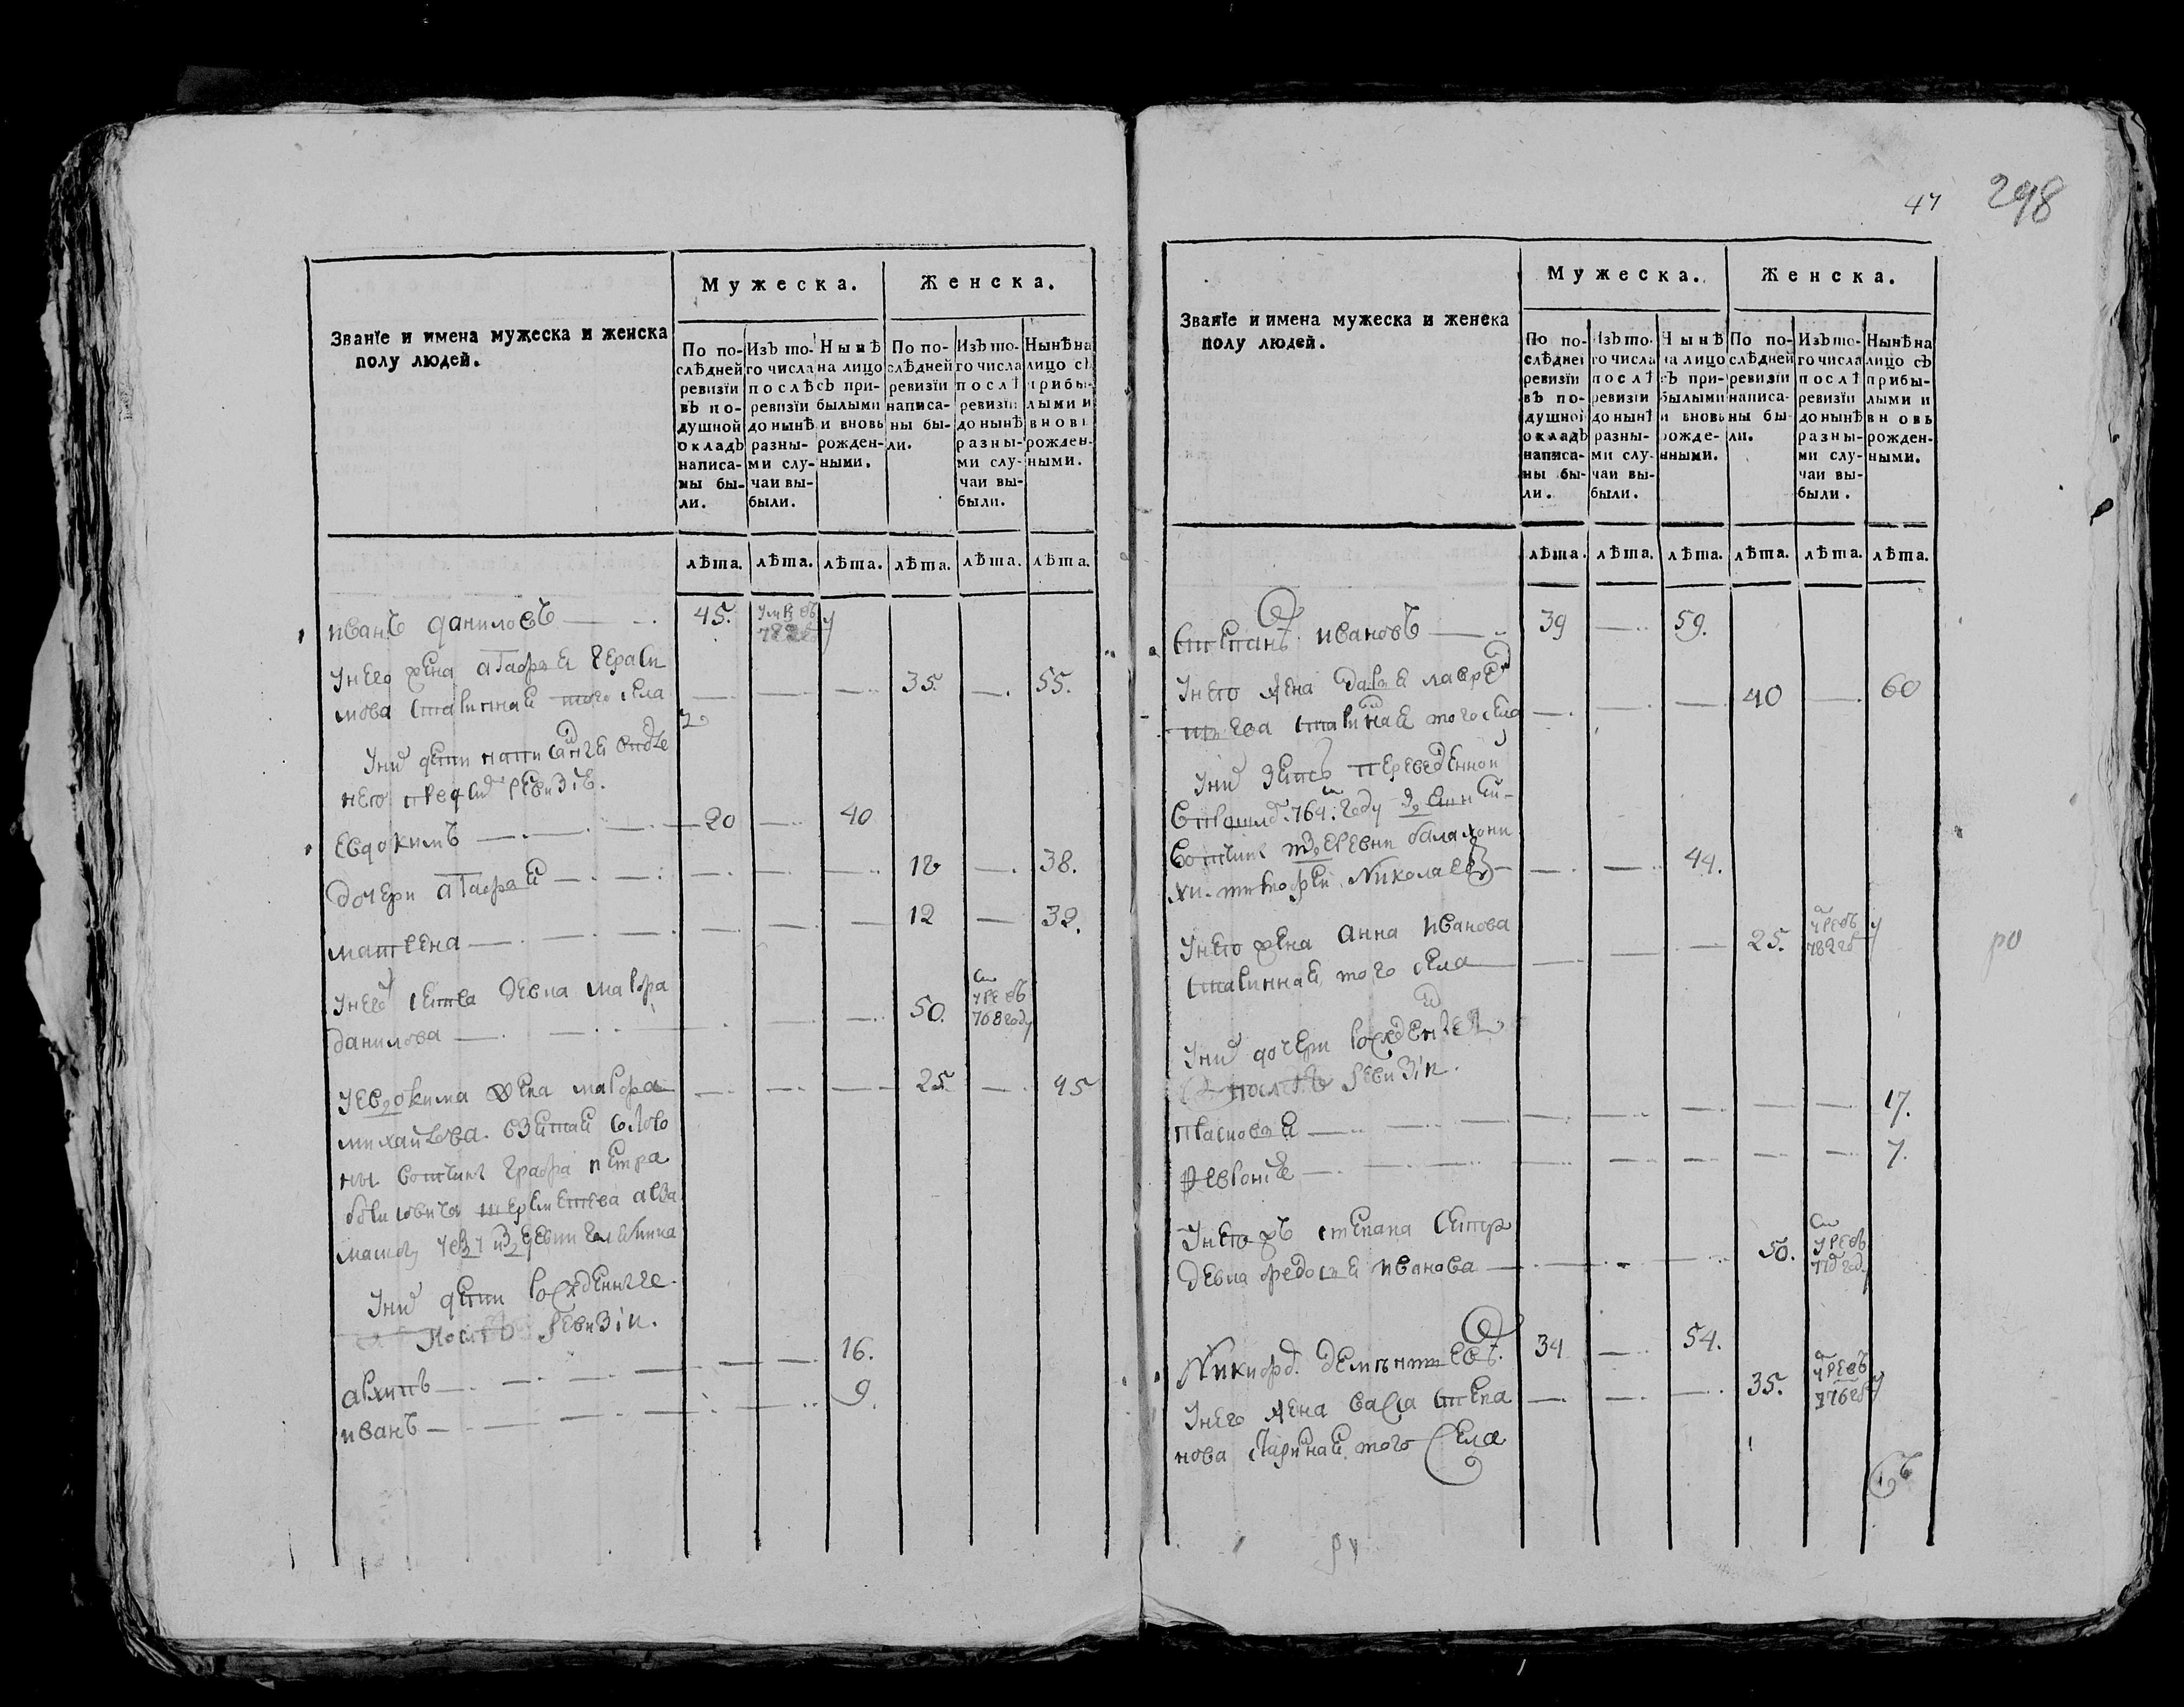 Званїе и имена мужеска и женска
полу людей.
Мужеска.
Женска.
По по-
слѣдней
ревизїи
въ по-
душной
окладъ
написа-
ны бы-
ли.
Изъ то-
го числа
послѣ
ревизїи
до нынѣ
разны-
ми слу-
чаи вы-
были.
Нынѣ
на лицо
съ при-
былыми
и вновь
рожден-
ными.
По по-
слѣдней
ревизїи
написа-
ны бы-
ли.
Изъ то-
го числа
послѣ
ревизїи
до нынѣ
разны-
ми слу-
чаи вы-
были.
Нынѣ на
лицо съ
прибы-
лыми и
вновь
рожден-
ными.
лѣта. лѣта. лѣта. лѣта. лѣта. лѣта.
иванъ даниловъ 45. 782
у него жена агафья гераси
мова старинная того села 35. 55.
у них дети
ревизіе.
евдокимъ 20 40
дочери агафья 18 38.
матрена 12 32.
у него сестра девка мавра
данилова 50. 768 году
у евдокима жена мавра 25 45
михайлова взятая
вотчины графа петра
борисовича шереметева
у них дети рожденные
после ревизіи.
архипъ 16.
иванъ 9.
47
298
Званїе и имена мужеска и женска
полу людей.
Мужеска.
Женска.
По по-
слѣдней
ревизїи
въ по-
душной
окладъ
написа-
ны бы-
ли.
Изъ то-
го числа
послѣ
ревизїи
до нынѣ
разны-
ми слу-
чаи вы-
были.
Нынѣ
на лицо
съ при-
былыми
и вновь
рожде-
нными.
По по-
слѣдней
ревизїи
написа-
ны бы-
ли.
Изъ то-
го числа
послѣ
ревизїи
до нынѣ
разны-
ми слу-
чаи вы-
были.
Нынѣ на
лицо съ
прибы-
лыми и
вновь
рожден-
ными.
лѣта. лѣта. лѣта. лѣта. лѣта. лѣта.
степанъ ивановъ 39 59.
у него жена дарья лаврен
тьева старинная того села 40 60
у них зять переведенной
764 году
вотчины деревни балахони
хи тимофей николаевъ 44.
у него жена анна иванова 25. 782
старинная того села
у них дочери рожденные
после ревизіи.
прасковья 17.
февронье 7.
у него жъ степана сестра
девка федосья иванова 50.
никифоръ дементьевъ. 34 54.
у него жена васса степа 35. 776
нова старинная того села